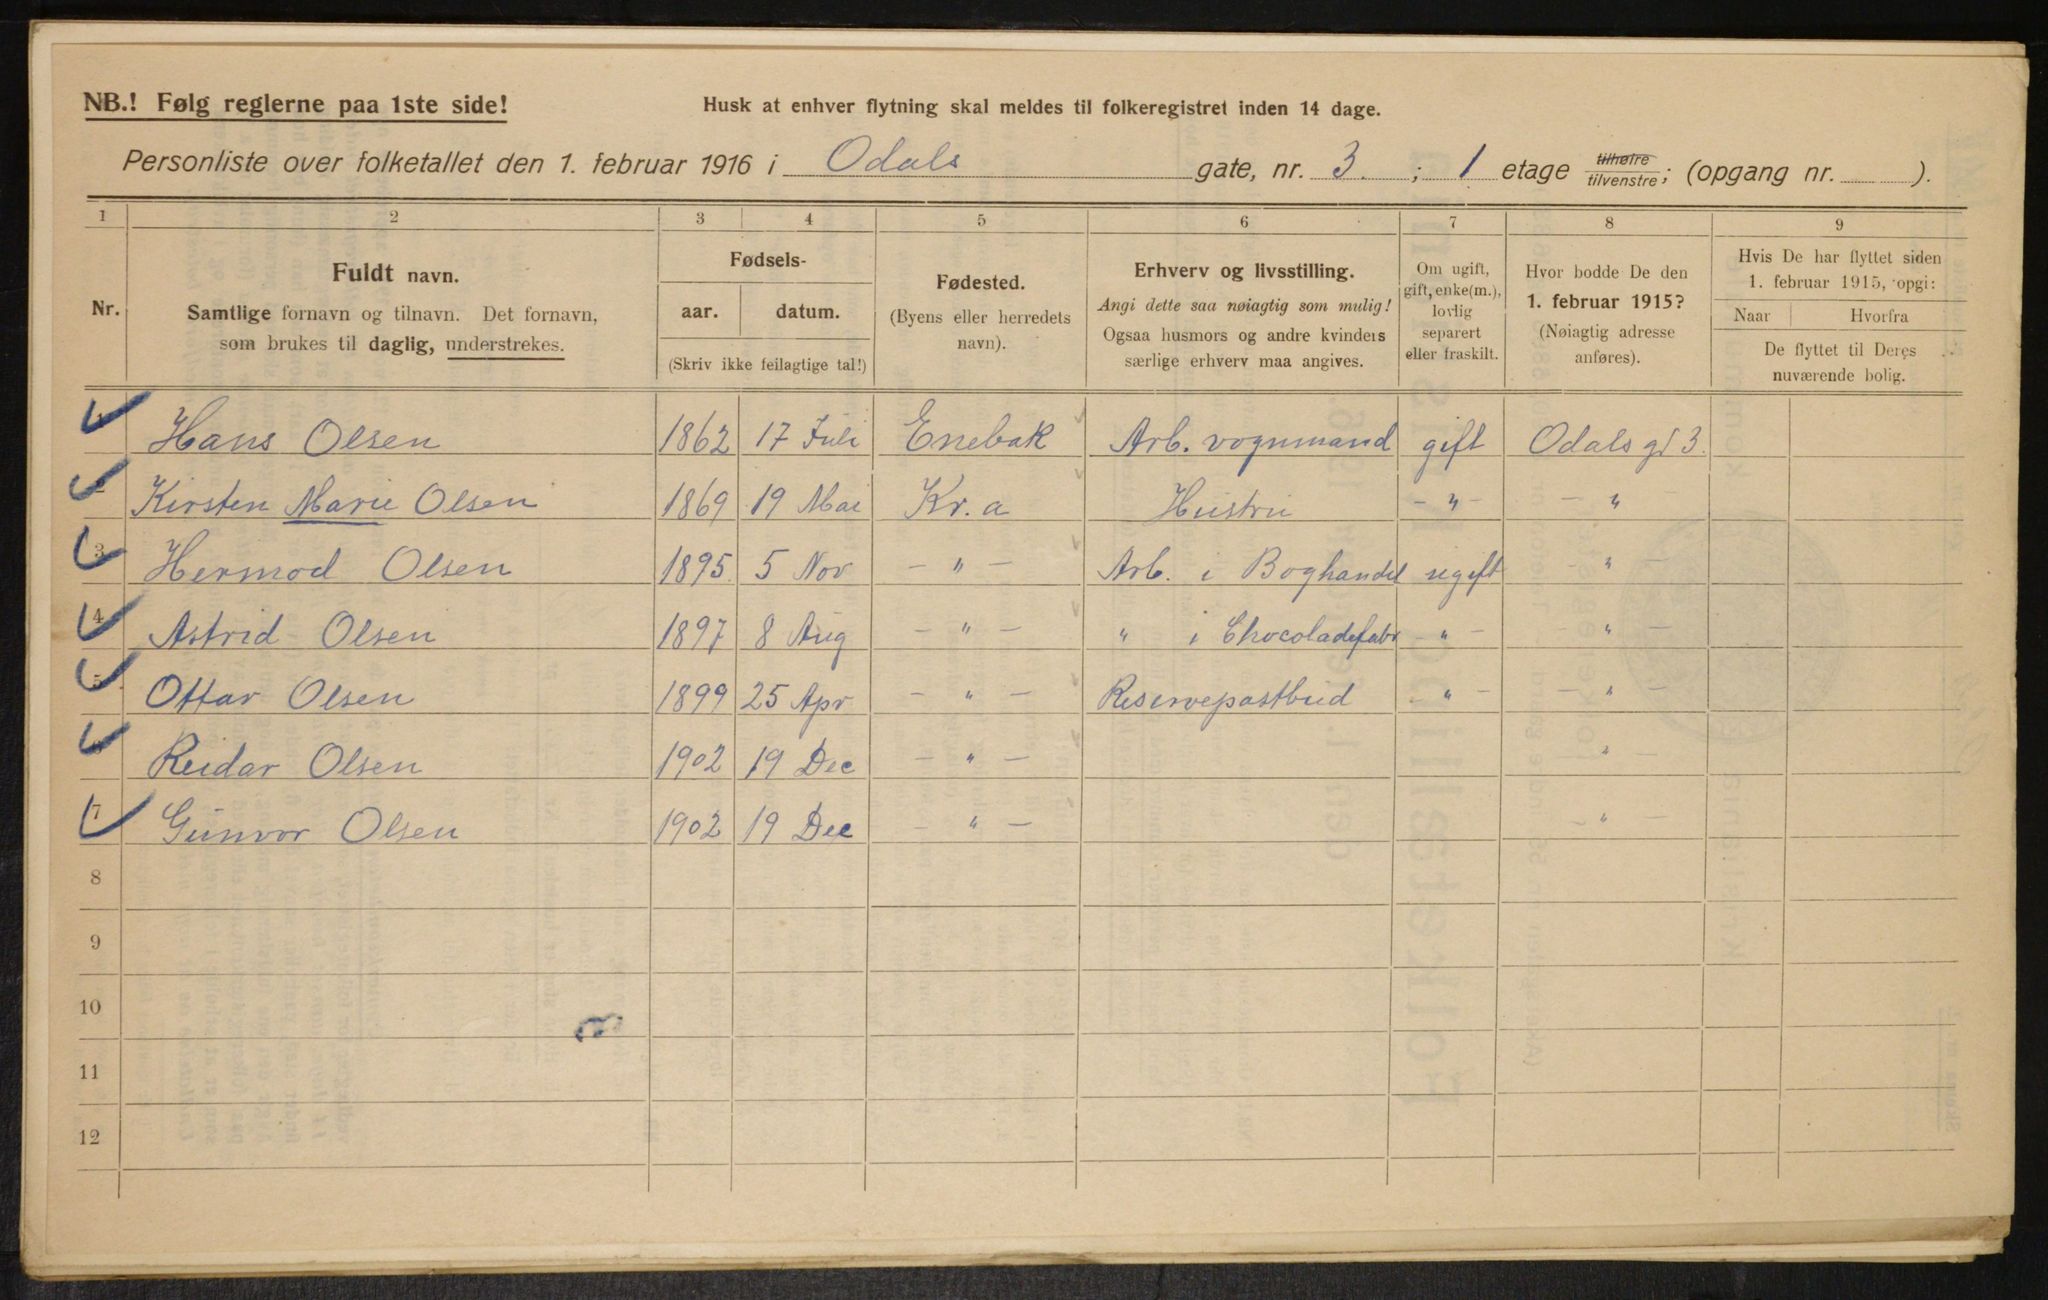 NB.! Følg reglerne paa 1ste side!
Husk at enhver flytning skal meldes til folkeregistret inden 14 dage.
Personliste over folketallet den 1. februar 1916 i Odals gate, nr. 3 ; 1 etage tilhøire tilvenstre; (opgang nr. ).
1 2 3 4 5 6 7 8 9
Nr.
Fuldt navn.
Samtlige fornavn og tilnavn. Det fornavn,
som brukes til daglig, understrekes.
Fødsels-
aar. datum.
(Skriv ikke feilagtige tal!)
Fødested.
(Byens eller herredets
navn).
Erhverv og livsstilling.
Angi dette saa nøiagtig som mulig!
Ogsaa husmors og andre kvinders
særlige erhverv maa angives.
Om ugift,
gift, enke(m.),
lovlig
separert
eller fraskilt.
Hvor bodde De den
1. februar 1915?
(Nøiagtig adresse
anføres).
Hvis De har flyttet siden
1. februar 1915, opgi:
Naar Hvorfra
De flyttet til Deres
nuværende bolig.
1 Hans Olsen 1862 17 Juli Enebak Arb. vognmand gift Odals gt 3.
2 Kirsten Marie Olsen 1869 19 Mai Kr. a Hustru - " - - " -
3 Hermod Olsen 1895 5 Nov - " - Arb. i Boghandel ugift - " -
4 Astrid Olsen 1897 8 Aug - " - " i Chocoladefabr - " - - " -
5 Ottar Olsen 1899 25 Apr - " - Reservepostbud - " - - " -
6 Reidar Olsen 1902 19 Dec - " - " -
7 Gunvor Olsen 1902 19 Dec - " - - " -
8
9
10
11
12